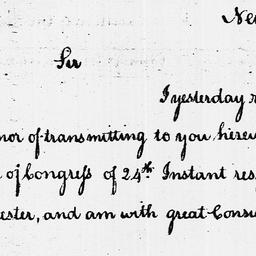 Ne
Sir
I yesterday r
nor of transmitting to you herew
of Congreſs of 24th Instant res
ester, and am with great Consid